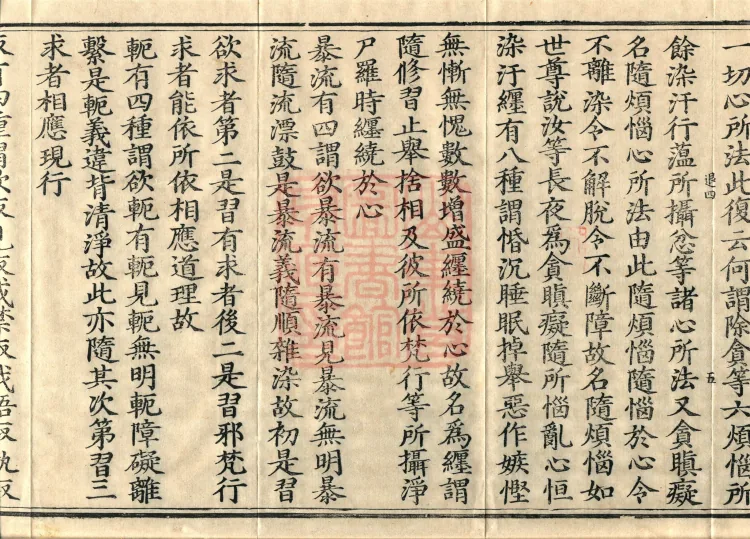 一切心所法此復云何謂除貪等六煩惱所
餘染汙行蘊所攝忿等諸心所法又貪瞋癡
名隨煩惱心所法由此隨煩惱隨惱於心令
不離染令不解脫令不斷障故名隨煩惱如
世尊說汝等長夜為貪瞋癡隨所惱亂心恒
染汙纏有八種謂惛沉睡眠掉舉惡作嫉慳
無慚無愧數數增盛纏繞於心故名為纏謂
隨修習止舉捨相及彼所依梵行等所攝淨
尸羅時纏繞於心
暴流有四謂欲暴流有暴流見暴流無明暴
流隨流漂鼓是暴流義隨順雜染故初是習
欲求者第二是習有求者後二是習邪梵行
求者能依所依相應道理故
軛有四種謂欲軛有軛見軛無明軛障礙離
繫是軛義違背清淨故此亦隨其次第習三
求者相應現行
五